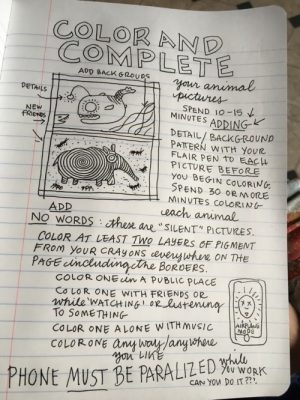 COLOR AND
COMPLETE
ADD BACKGROUNDS
your animal
pictures
DETAILS
NEW
FRIENDS
SPEND 10-15
MINUTES ADDING
DETAIL/BACKGROUND
PATERN WITH YOUR
FLAIR PEN TO EACH
PICTURE BEFORE
YOU BEGIN COLORING.
SPEND 30 OR MORE
MINUTES COLORING
each animal
ADD
NO WORDS: these are "SILENT" PICTURES.
COLOR AT LEAST TWO LAYERS OF PIGMENT
FROM YOUR CRAYONS everywhere ON THE
PAGE including the BORDERS.
COLOR ONE in a PUBLIC PLACE
COLOR ONE WITH FRIENDS OR
while 'WATCHING' or listening
TO SOMETHING
COLOR ONE ALONE WITH MUSIC
COLOR ONE Any way/any where
you LIKE
AIRPLANE
MODE
PHONE MUST BE PARALIZED while YOU WORK
CAN YOU DO IT??!